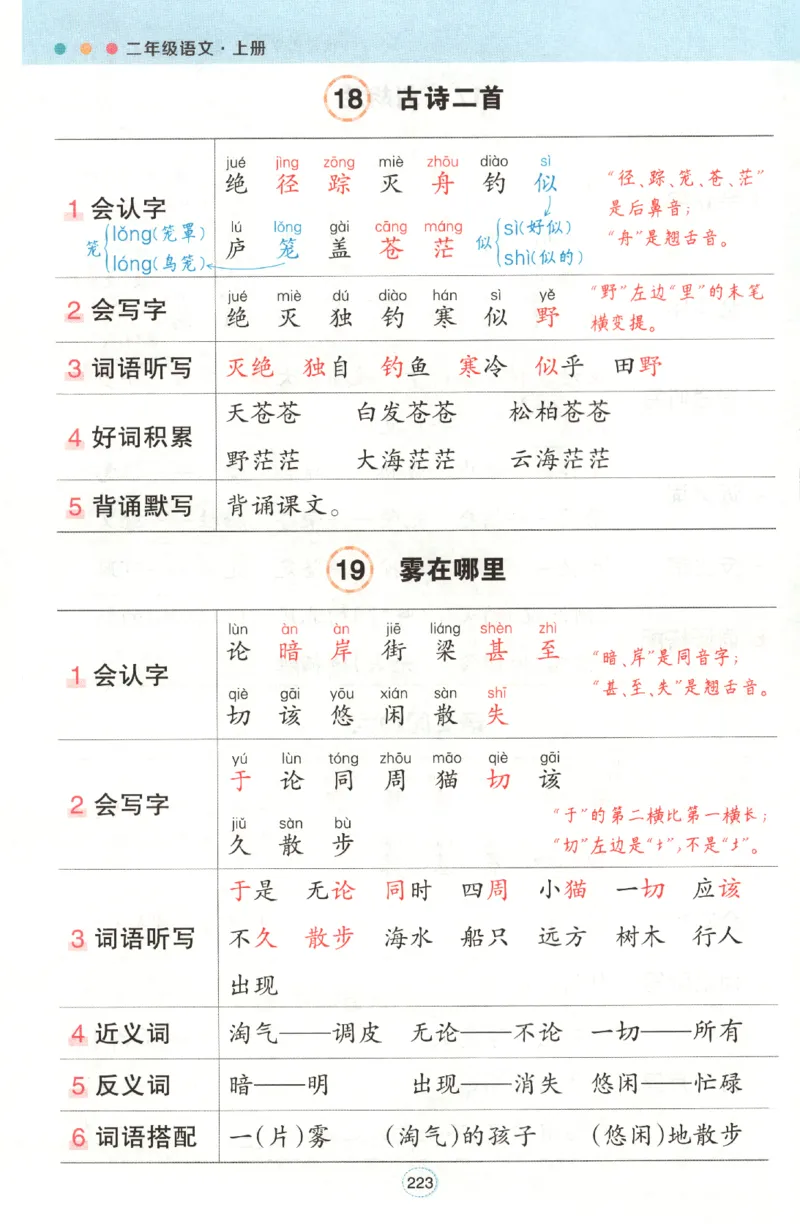 二年级语文·上册
18 古诗二首
1 会认字
jué jìng zōng miè zhōu diào sì
绝 径 踪 灭 舟 钓 似
lú lǒng gài cāng máng
庐 笼 盖 苍 茫
笼 lǒng(笼罩)
lóng(鸟笼)
似 sì(好似)
shì(似的)
“径、踪、笼、苍、茫”
是后鼻音;
“舟”是翘舌音。
2 会写字
jué miè dú diào hán sì yě
绝 灭 独 钓 寒 似 野
“野”左边“里”的末笔
横变提。
3 词语听写
灭绝 独自 钓鱼 寒冷 似乎 田野
4 好词积累
天苍苍 白发苍苍 松柏苍苍
野茫茫 大海茫茫 云海茫茫
5 背诵默写
背诵课文。
19 雾在哪里
1 会认字
lùn àn àn jiē liáng shèn zhì
论 暗 岸 街 梁 甚 至
qiè gāi yōu xián sàn shī
切 该 悠 闲 散 失
“暗、岸”是同音字;
“甚、至、失”是翘舌音。
2 会写字
yú lùn tóng zhōu māo qiè gāi
于 论 同 周 猫 切 该
jiǔ sàn bù
久 散 步
“于”的第二横比第一横长;
“切”左边是“㇀”,不是“土”。
3 词语听写
于是 无论 同时 四周 小猫 一切 应该
不久 散步 海水 船只 远方 树木 行人
出现
4 近义词
淘气——调皮 无论——不论 一切——所有
5 反义词
暗——明 出现——消失 悠闲——忙碌
6 词语搭配
一(片)雾 (淘气)的孩子 (悠闲)地散步
223